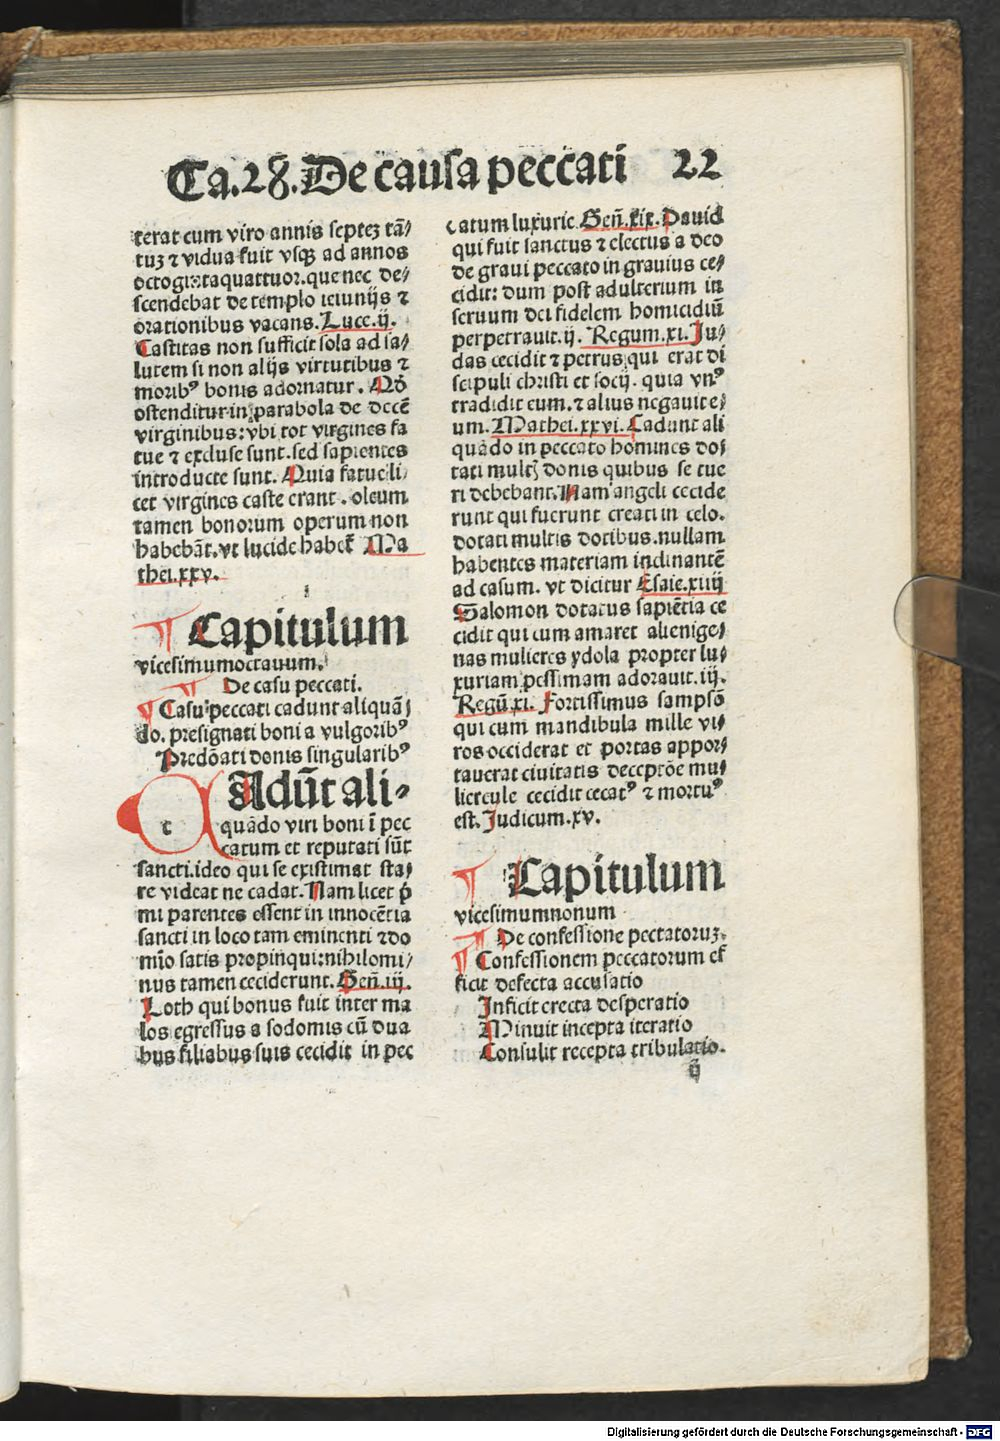 Ca.28.De causa peccati 22
terat cum viro annis septeʒ tā⸗
tuʒ ⁊ vidua fuit vsqꝫ ad annos
octogintaquattuor.que nec de⸗
scendebat de templo ieiunijs ⁊
orationibus vacans.Luce.ij.
Castitas non sufficit sola ad sa⸗
lutem si non alijs virtutibus ⁊
moribꝰ bonis adornatur.
ostenditur in parabola de decē
virginibus:vbi tot virgines fa
tue ⁊ excluse sunt.sed sapientes
introducte sunt.Quia fatue li⸗
cet virgines caste erant.oleum
tamen bonorum operum non
habebāt.vt lucide habet Ma
thei.xxv.
Capitulum
vicesimumoctauum.
De casu peccati.
Casu peccati cadunt aliquā⸗
do.presignati boni a vulgoribꝰ
Predōati donis singularibꝰ
c Adūt ali⸗
quādo viri boni ī pec
catum et reputati sūt
sancti.ideo qui se existimat sta⸗
re videat ne cadat.Nam licet p̄
mi parentes essent in innocētia
sancti in loco tam eminenti ⁊do
mīo satis propinqui:nihilomi⸗
nus tamen ceciderunt.Geñ.iij.
Loth qui bonus fuit inter ma
los egressus a sodomis cū dua
bus filiabus suis cecidit in pec
catum luxurie.Geñ.xix.Dauid
qui fuit sanctus ⁊ electus a deo
de graui peccato in grauius ce⸗
cidit: dum post adulterium in
seruum dei fidelem homicidiū
perpetrauit.ij. Regum.xi.Ju⸗
das cecidit ⁊ petrus qui erat di
scipuli christi et socij. quia vnꝰ
tradidit eum.⁊ alius negauit e⸗
um.Mathei.xxvi.Cadunt ali
quādo in peccato homines do⸗
tati multꝭ donis quibus se tue
ri debebant.Nam angeli cecide
runt qui fuerunt creati in celo.
dotati multis dotibus.nullam
habentes materiam inclinantē
ad casum. vt dicitur Esaie.xiiij
Salomon dotatus sapiētia ce
cidit qui cum amaret alienige⸗
nas mulieres ydola propter lu⸗
xuriam pessimam adorauit.iij.
Regū.xi. Fortissimus sampsō
qui cum mandibula mille vi⸗
ros occiderat et portas appor⸗
tauerat ciuitatis deceptōe mu⸗
liercule cecidit cecatꝰ ⁊ mortuꝰ
est.Judicum.xv.
Capitulum
vicesimumnonum
De confessione peccatoruʒ.
Confessionem peccatorum ef
ficit defecta accusatio
Inficit erecta desperatio
Minuit incepta iteratio
Consulit recepta tribulatio.
ij
Digitalisierung gefördert durch die Deutsche Forschungsgemeinschaft - DFG